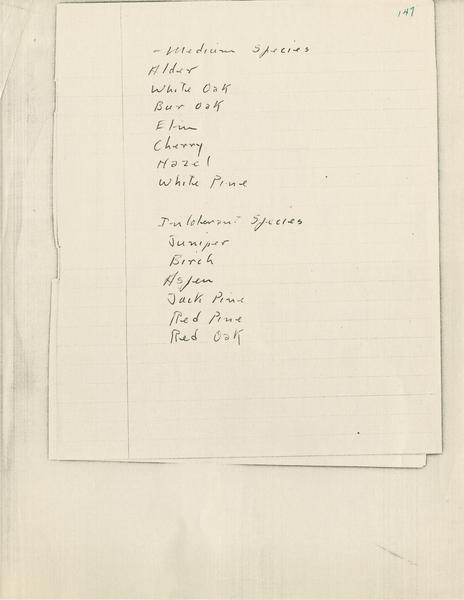 147
- Medium Species
Alder
White Oak
Bur Oak
Elm
Cherry
Hazel
White Pine
Intolerant Species
Juniper
Birch
Aspen
Jack Pine
Red Pine
Red Oak